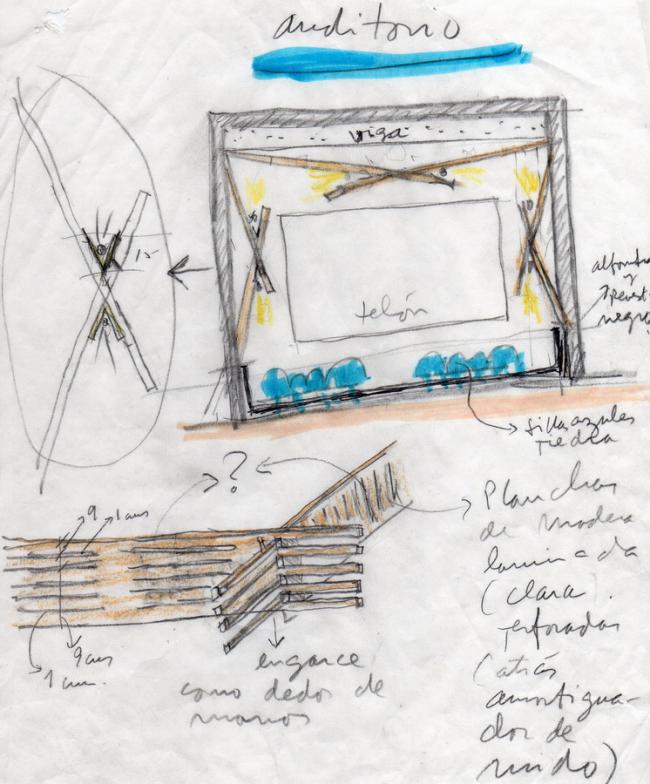 auditorio
viga
15
telón
alfombra
y
negro
sillas azules
piedra
?
9
1 cm
9 cm
1 cm.
engarce
como dedos de
manos
Planchas
de madera
laminada
(clara.
perforadas
(atrás
amortigua-
dor de
ruido)